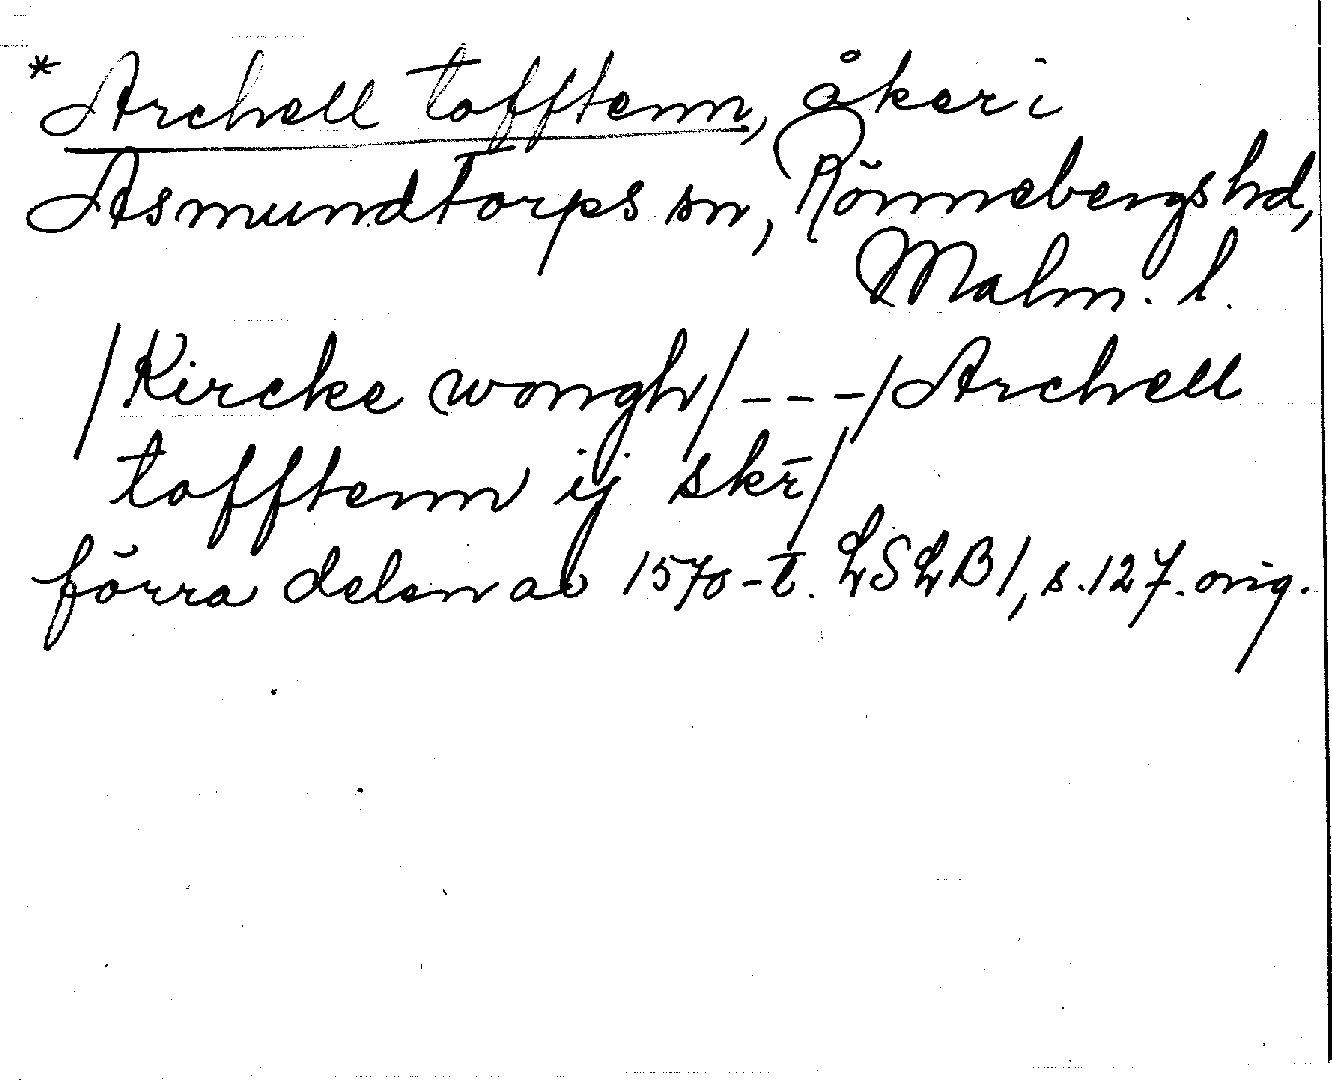 *Archell tofftenn, åker i
Asmundtorps sn, Rönnebergs hd,
Malm. l.
/Kircke wongh/ - - - /Archell
tofftenn ij skr̄/
förra delen av 1570-t. LSLB1, s.127. orig.